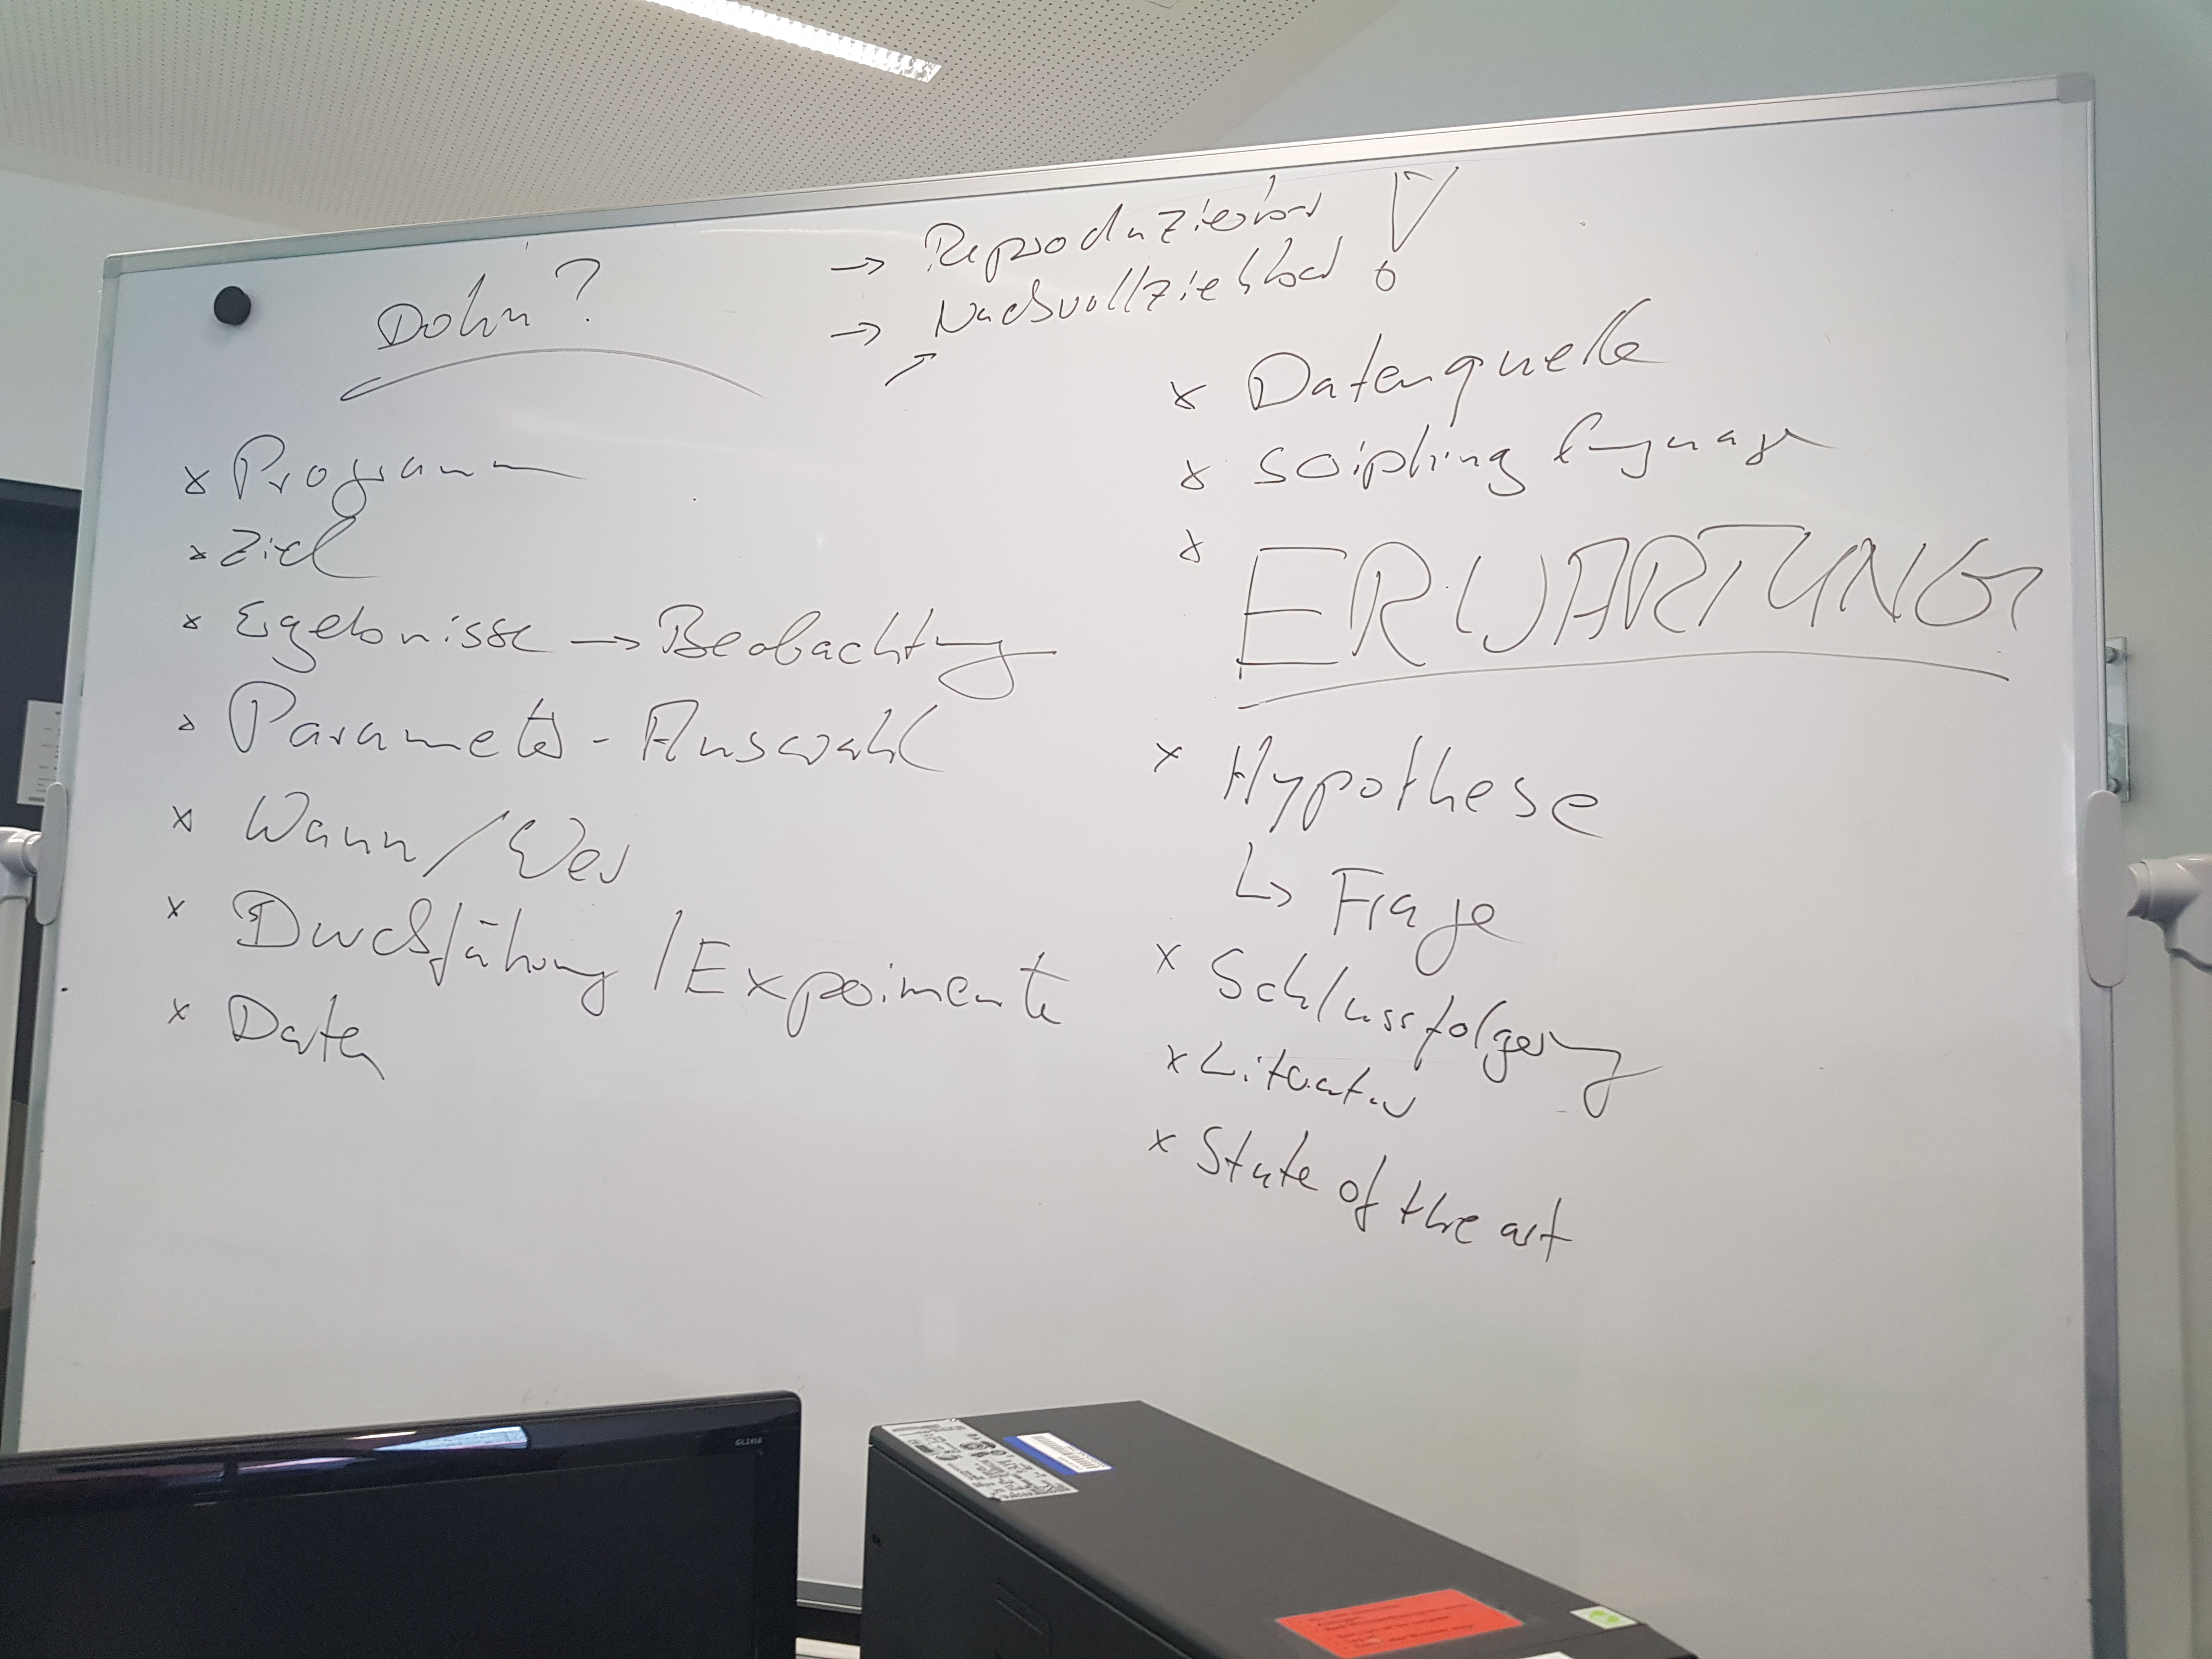 Doku?
→ Reproduzierbar
→ Nachvollziehbar !
x Programm
x Ziel
x Ergebnisse → Beobachtung
x Parameter - Auswahl
x Wann / Wer
x Durchführung / Experimente
x Daten
x Datenquelle
x Scripting language
x ERWARTUNG
x Hypothese
↳ Frage
x Schlussfolgerung
x Literatur
x State of the art